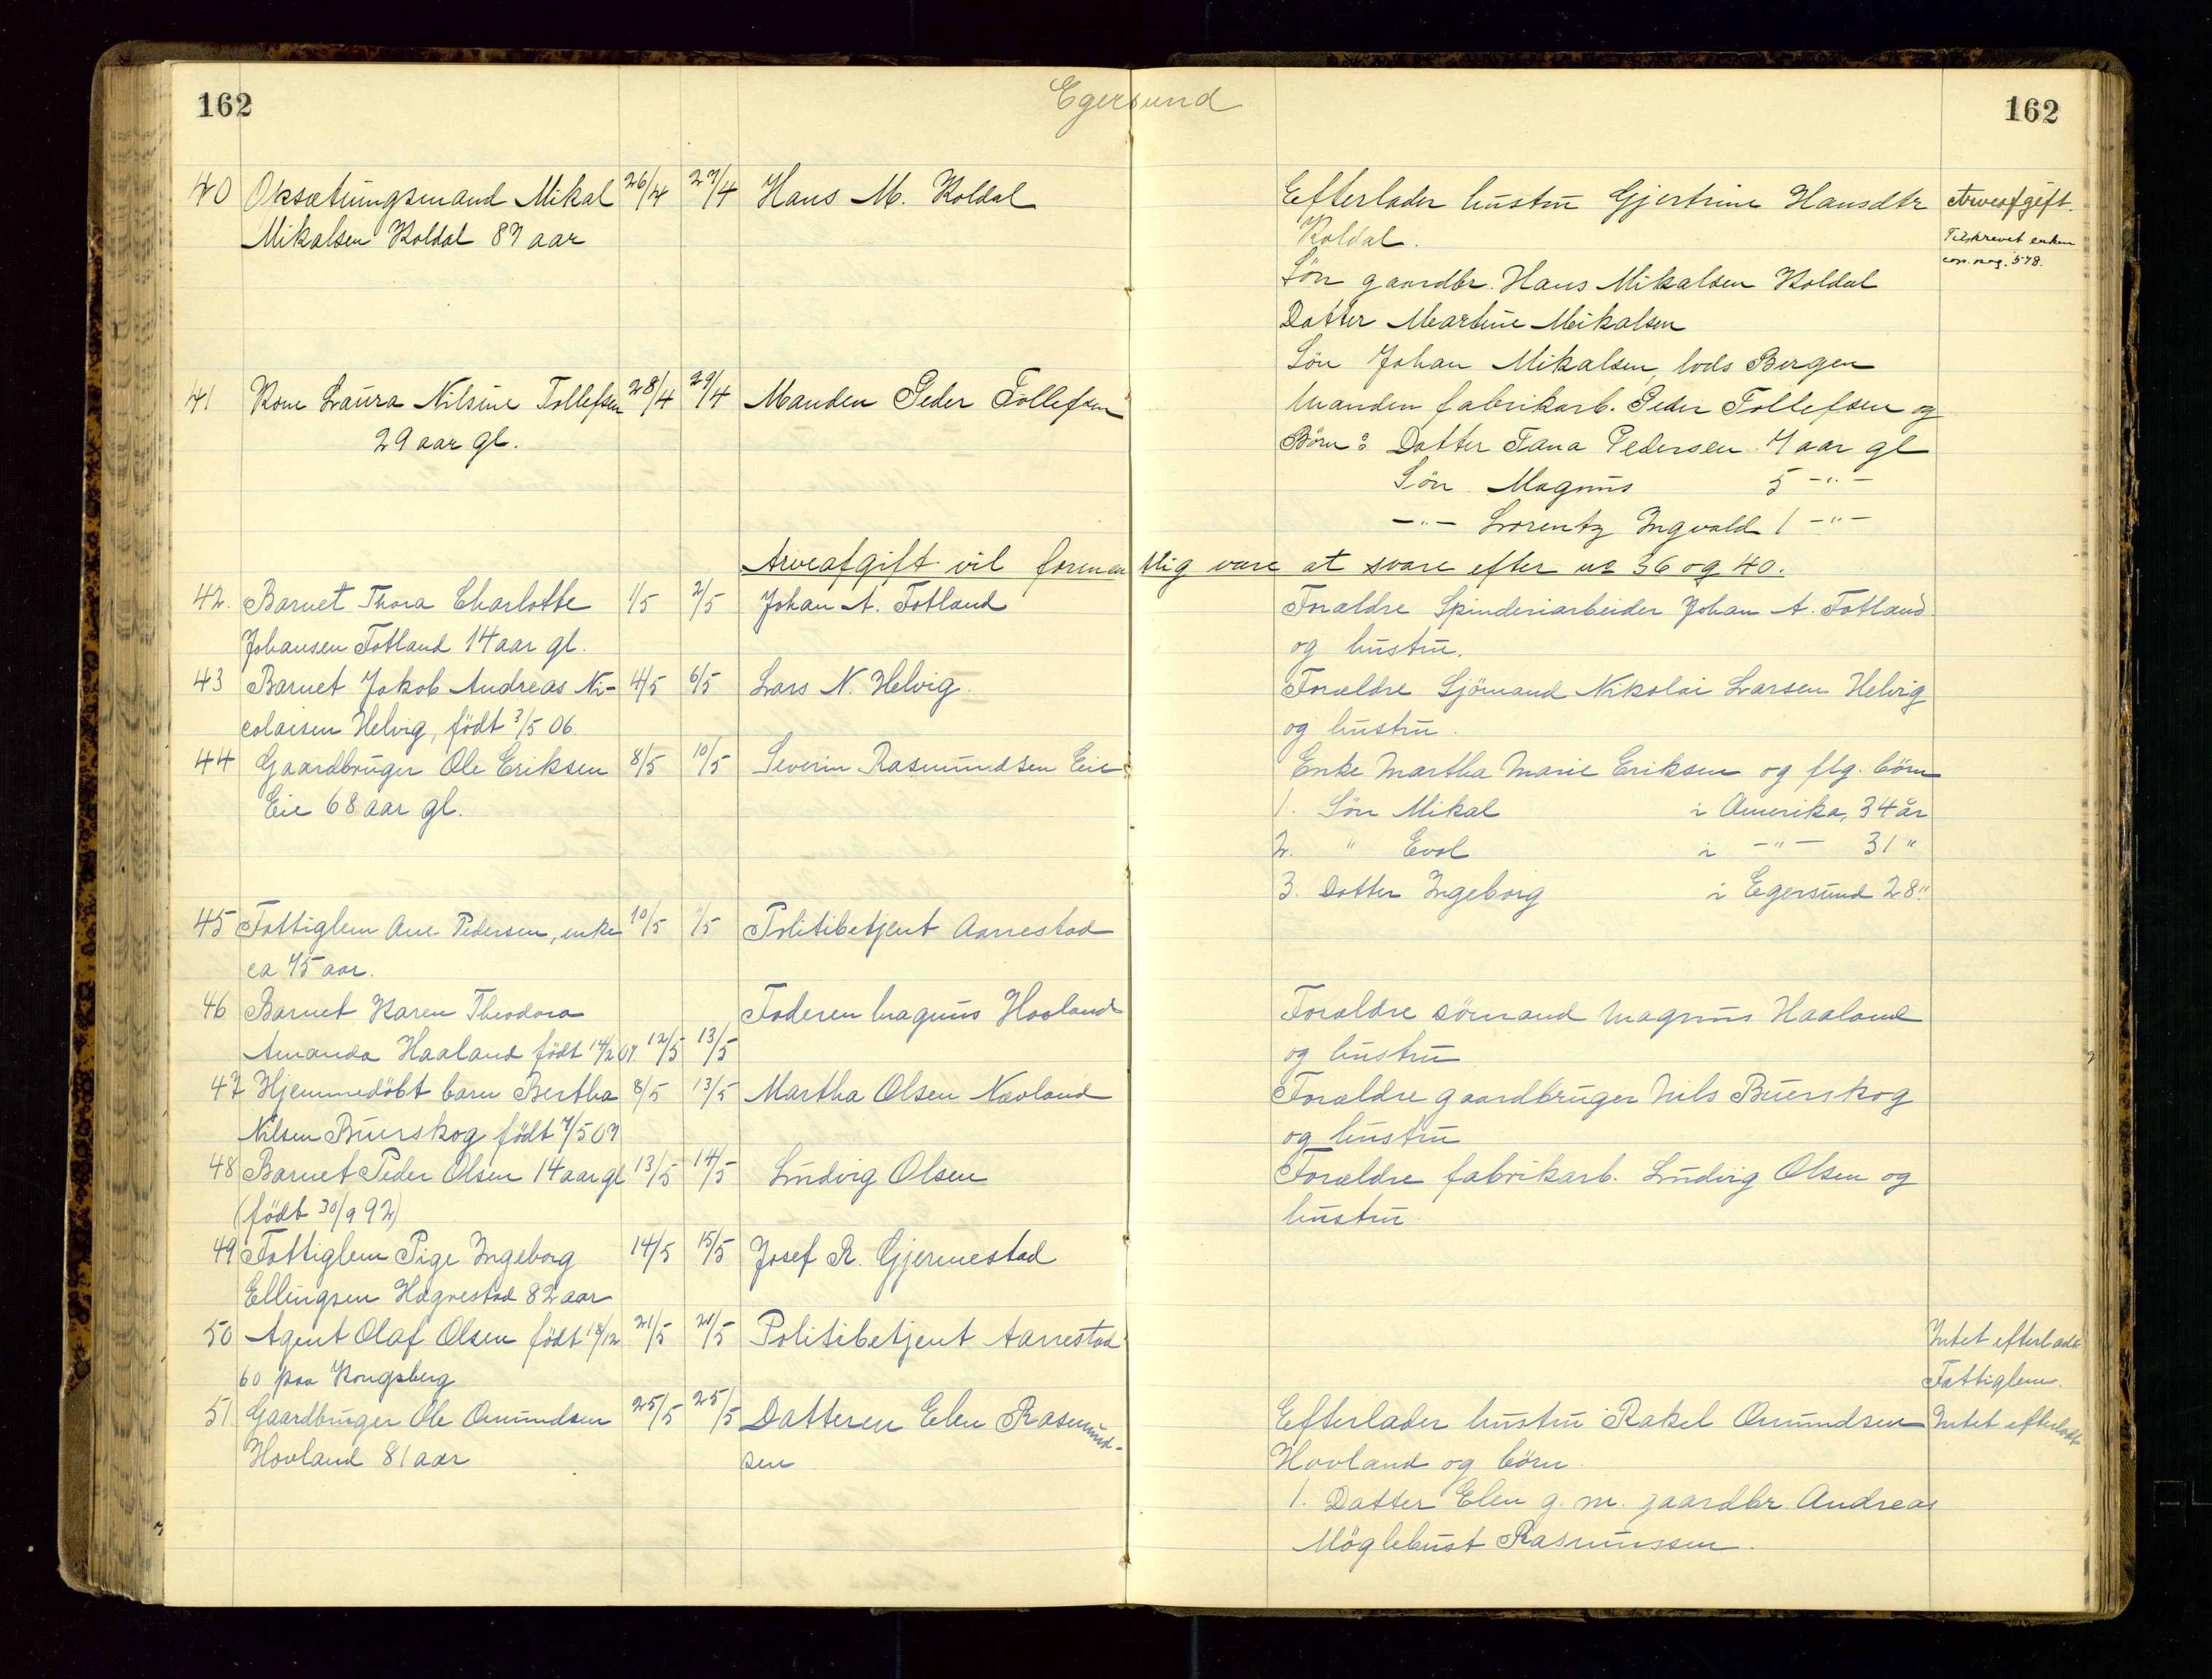 162
Egersund
162
40 Opsætningsmand Mikal 26/4 27/4 Hans M. Koldal Efterlader hustru Gjertrine Hansdtr Arveafgift.
Mikalsen Koldal 87 aar Koldal. Tilskrevet enken
Søn gaardbr. Hans Mikalsen Koldal cop. pag. 578.
Datter Martine Mikalsen
Søn Johan Mikalsen, lods Bergen
41 Kone Laura Nilsine Tollefsen 28/4 29/4 Manden Peder Tollefsen Manden fabrikarb. Peder Tollefsen og
29 aar gl. Børn: Datter Tana Pedersen 7 aar gl
Søn Magnus 5 -"-
-"- Lorentz Ingvald 1 -"-
Arveafgift vil formentlig være at svare efter no 36 og 40.
42. Barnet Thora Charlotte 1/5 2/5 Johan A. Fotland Forældre Spinderiarbeider Johan A. Fotland
Johansen Fotland 14 aar gl. og hustru.
43 Barnet Jakob Andreas Ni- 4/5 6/5 Lars N. Helvig. Forældre Sjömand Nikolai Larsen Helvig
colaisen Helvig, født 3/5 06. og hustru.
44 Gaardbruger Ole Eriksen 8/5 10/5 Severin Rasmundsen Eie Enke Martha Marie Eriksen og flg. børn
Eie 68 aar gl. 1. Søn Mikal i Amerika, 34 år
2. " Evol i -"- 31 "
3. Datter Ingeborg i Egersund 28 "
45 Fattiglem Ane Pedersen, enke 10/5 11/5 Politibetjent Aarrestad
ca 75 aar.
46 Barnet Karen Theodora Faderen Magnus Haaland Forældre sömand Magnus Haaland
Amanda Haaland født 14/2 07. 12/5 13/5 og hustru
47 Hjemmedöbt barn Bertha 8/5 13/5 Martha Olsen Nævland Forældre gaardbruger Nils Buerskog
Nilsen Buerskog født 7/5 07 og hustru
48 Barnet Peder Olsen 14 aar gl 13/5 14/5 Ludvig Olsen Forældre fabrikarb. Ludvig Olsen og
(født 30/9 92) hustru
49 Fattiglem Pige Ingeborg 14/5 15/5 Josef R. Gjermestad
Ellingsen Hægrestad 82 aar
50 Agent Olaf Olsen født 18/12 21/5 21/5 Politibetjent Aarrestad Intet efterladt
60 paa Kongsberg Fattiglem.
51. Gaardbruger Ole Omundsen 25/5 25/5 Datteren Elen Rasmund- Efterlader hustru Rakel Omundsen Intet efterladt
Hovland 81 aar sen Hovland og børn.
1. Datter Elen g. m. gaardbr. Andreas
Møglebust Rasmussen.